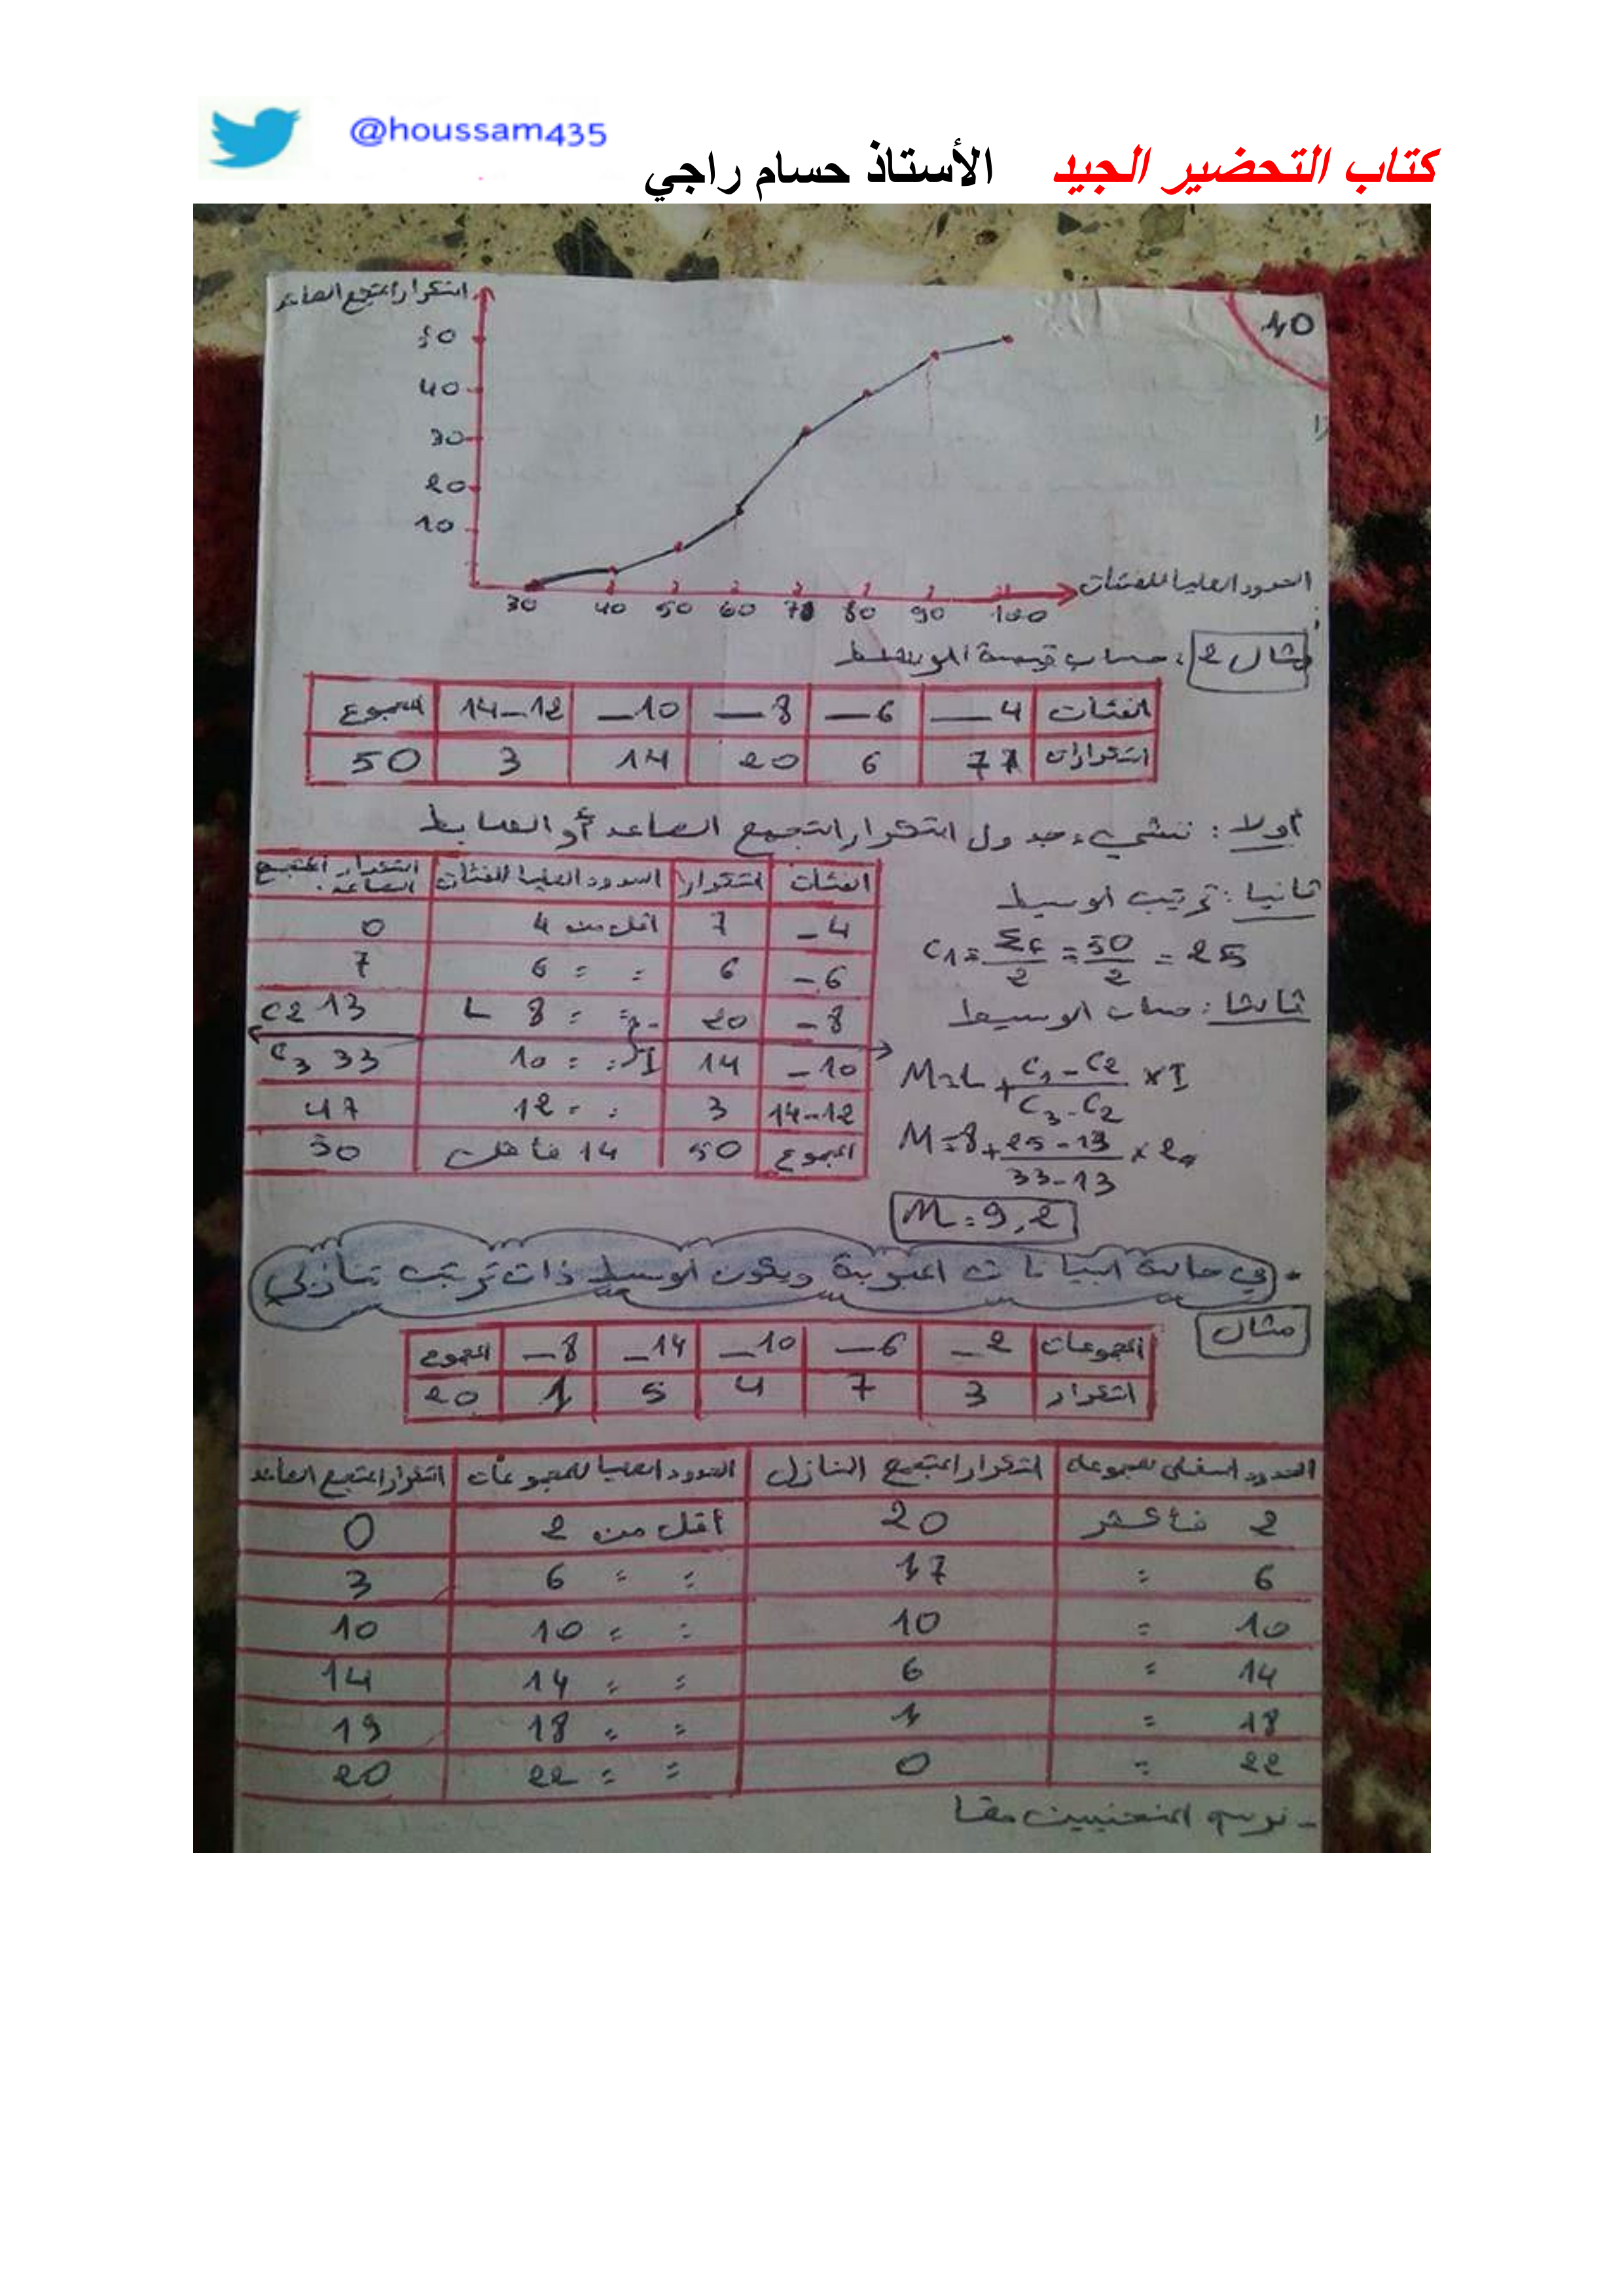 @houssam435
كتاب التحضير الجيد الأستاذ حسام راجي
40
التكرار المتجمع الصاعد
50
40
30
20
10
30 40 50 60 70 80 90 100
الحدود العليا للفئات
مثال 2 : حساب قيمة الوسيط
الفئات 4_ 6_ 8_ 10_ 12_14 المجموع
التكرارات 7 6 20 14 3 50
أولا : ننشيء جدول التكرار المتجمع الصاعد أو الهابط
الفئات التكرار الحدود العليا للفئات التكرار المتجمع الصاعد
4_ 7 أقل من 4 0
6_ 6 = = 6 7
8_ 20 = = 8 L 13 C2
10_ 14 = = 10 I 33 C3
12_14 3 = = 12 47
المجموع 50 14 فأقل 50
ثانيا : ترتيب الوسيط
C1 = Σf/2 = 50/2 = 25
ثالثا : حساب الوسيط
M = L + (C1 - C2)/(C3 - C2) × I
M = 8 + (25 - 13)/(33 - 13) × 2
M = 9,2
- في حالة البيانات المبوبة ويكون الوسيط ذات ترتيب تنازلي
مثال
المجموعات 2_ 6_ 10_ 14_ 8_ المجموع
التكرار 3 7 4 5 1 20
الحدود السفلى للمجموعة التكرار المتجمع النازل الحدود العليا للمجموعات التكرار المتجمع الصاعد
2 فأكثر 20 أقل من 2 0
6 = 17 = = 6 3
10 = 10 = = 10 10
14 = 6 = = 14 14
18 = 1 = = 18 19
22 = 0 = = 22 20
- نرسم المنحنيين معا